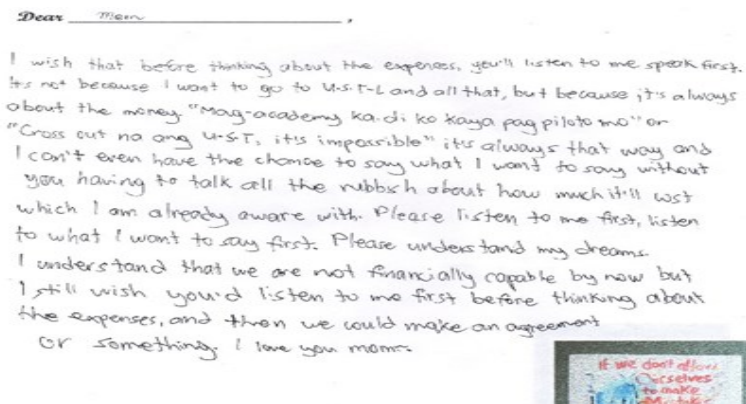 Dear Mom,
I wish that before thinking about the expenses, you'll listen to me speak first.
It's not because I want to go to U.S.T-L and all that, but because it's always
about the money. "Mag-academy ka. di ko kaya pag piloto mo" or
"Cross out na ang U.S.T, it's impossible" it's always that way and
I can't even have the chance to say what I want to say without
you having to talk all the rubbish about how much it'll cost
which I am already aware with. Please listen to me first, listen
to what I want to say first. Please understand my dreams.
I understand that we are not financially capable by now but
I still wish you'd listen to me first before thinking about
the expenses, and then we could make an agreement
or something. I love you mom.
If we don't allow
Ourselves
to make